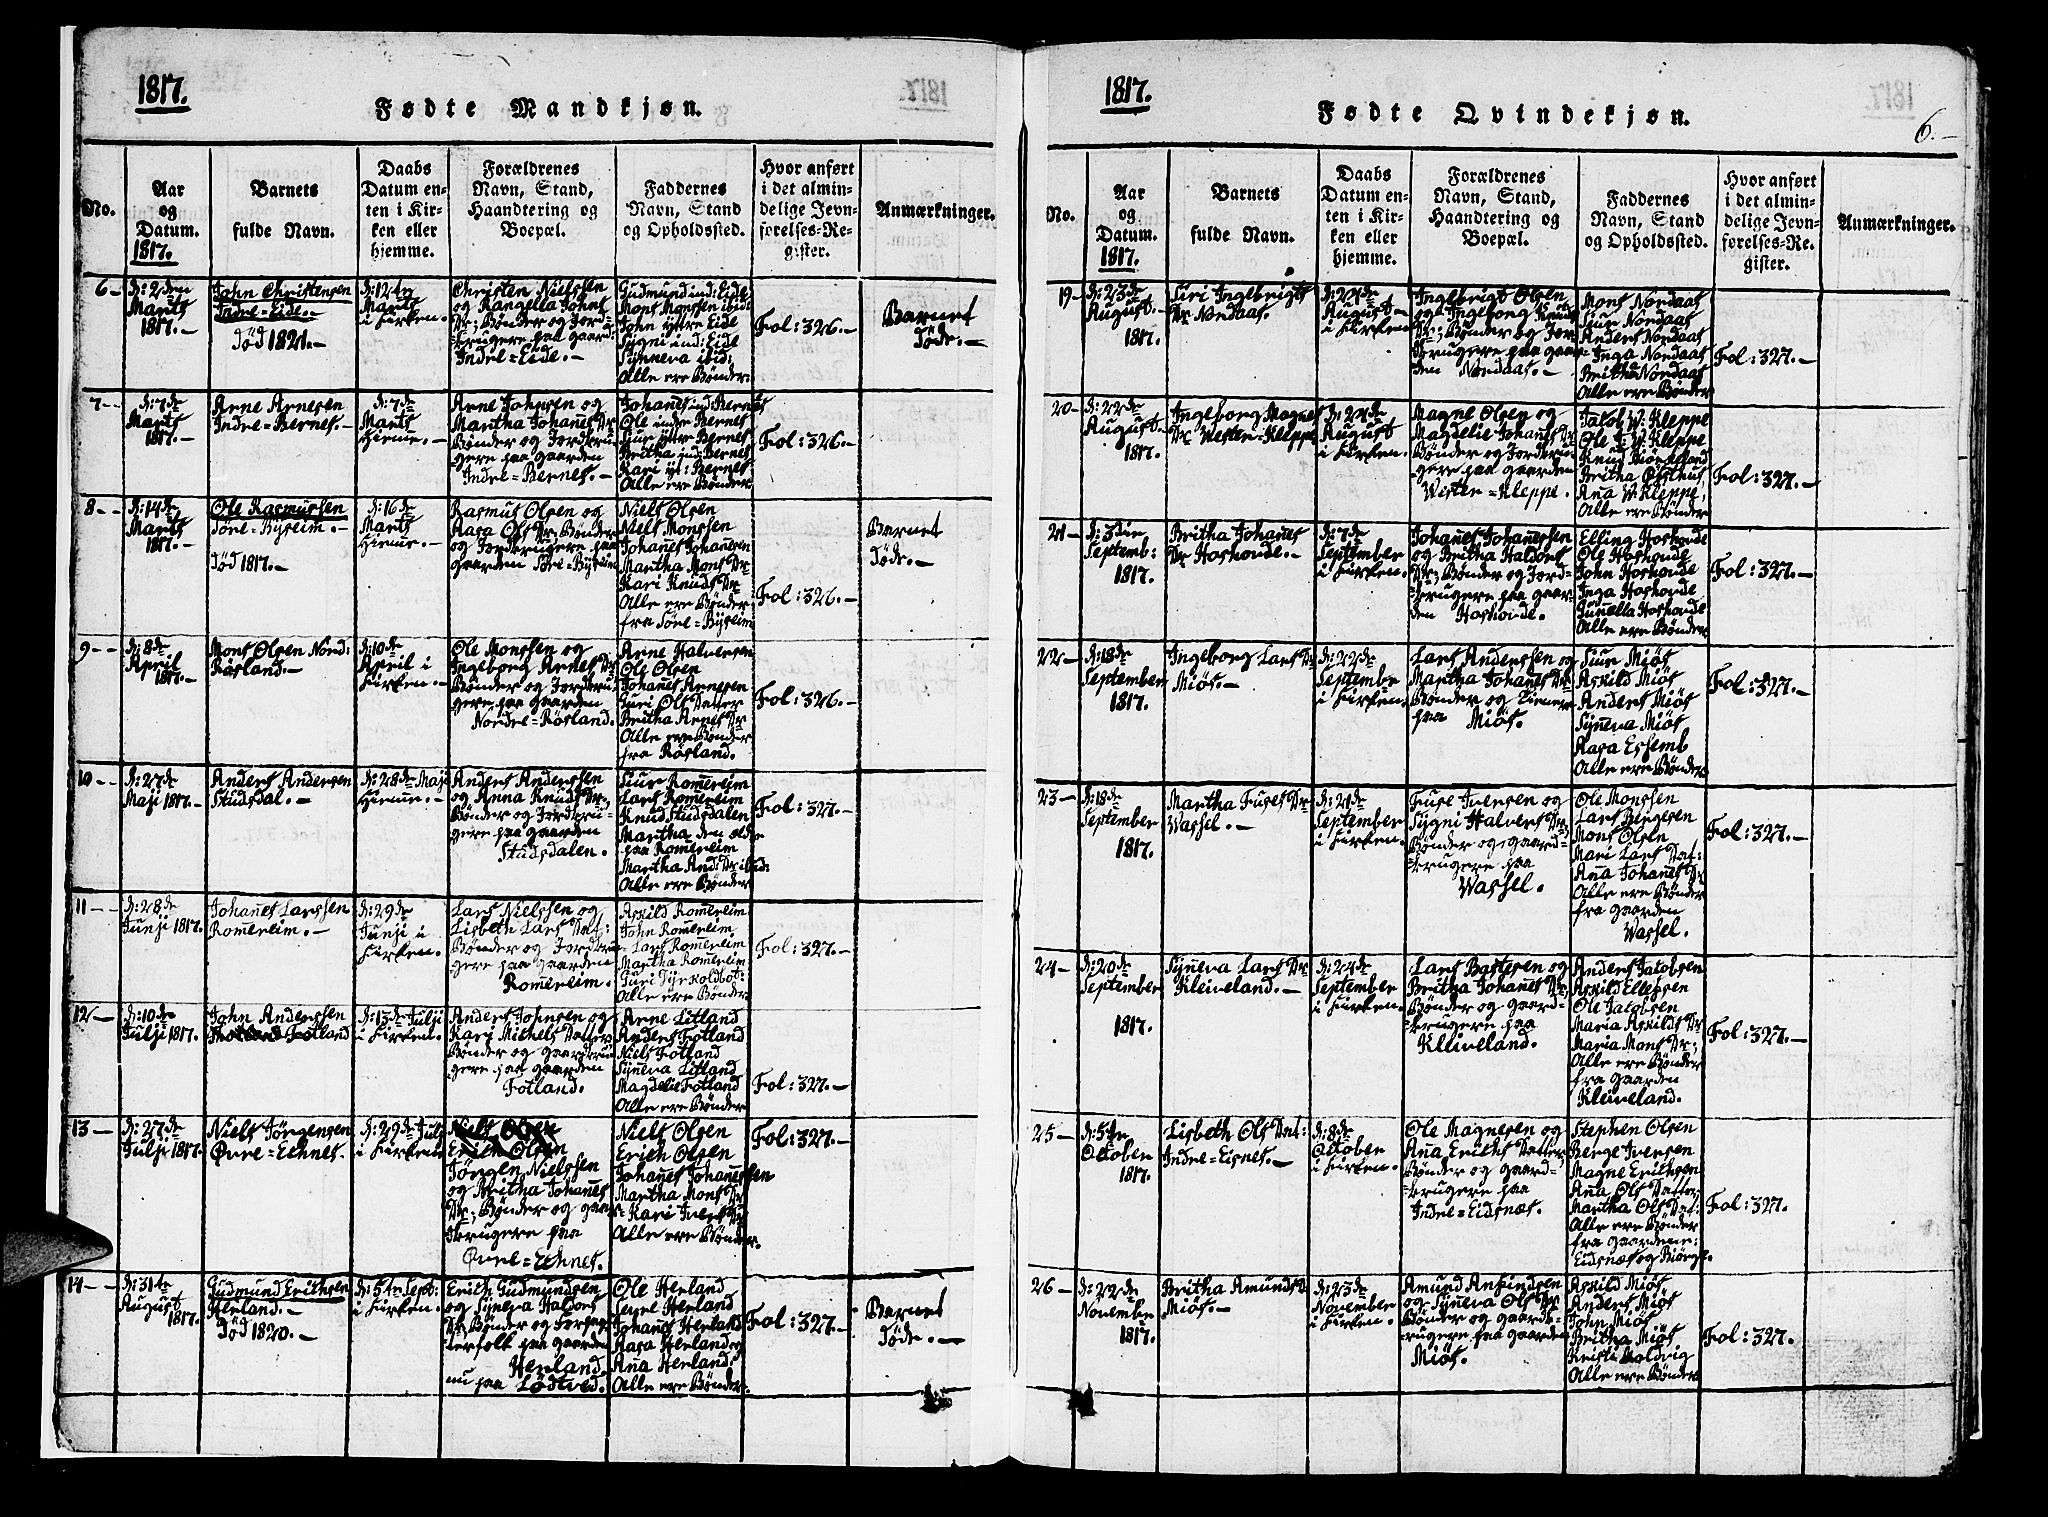 1817.
Fødte Mandkjøn.
No.
Aar
og
Datum.
1817.
Barnets
fulde Navn.
Daabs
Datum en-
ten i Kir-
ken eller
hjemme.
Forældrenes
Navn, Stand,
Haandtering og
Boepæl.
Faddernes
Navn, Stand
og Opholdssted.
Hvor anført
i det almin-
delige Jevn-
førelses-Re-
gister.
Anmærkninger.
6 -
d: 2den
Marts
1817. -
John Christensen
Indre=Eide. -
Død 1821. -
d: 12te
Marts
i Kirken. -
Christen Nielssen
og Rangella Johns
Dr; Bønder og Jord-
=brugere paa gaard
Indre=Eide. -
Gudmund ind: Eide
Mons Monssen ibid:
John ytre Eide
Sygni ind: Eide
Synneva ibid:
Alle ere Bønder.
Fol: 326. -
Barnet
Døde. -
7 - -
d: 7de
Marts
1817. -
Arne Arnesen
Indre=Bernes. -
d: 7de
Marts
Hieme. -
Arne Johnsen og
Martha Johanes Dr
Bønder og Jordbru-
gere paa gaarden
Indre=Bernes. -
Johanes ind: Bernes
Ole indre Bernes
Siur ytre Bernes
Britha ind: Bernes
Kari yt: Bernes
Alle ere Bønder.
Fol: 326. -
8 - -
d: 14de
Marts
1817. -
Ole Rasmussen
Søre=Byseim. -
Død 1817. -
d: 16de
Marts
Hieme. -
Rasmus Olsen og
Aasa Ols Dr; Bønder
og Jordbrugere paa
gaarden Søre=Byseim
Niels Olsen
Niels Monssen
Johanes Johanesen
Martha Mons Dr
Kari Knuds Dr
Alle ere Bønder
fra Søre=Byseim
Fol: 326. -
Barnet
Døde. -
9 - -
d: 8de
April
1817. -
Mons Olsen Nord:
Røsland. -
d: 10de
April i
Kirken. -
Ole Monssen og
Ingeborg Arnes Dr
Bønder og Jordbru-
gere paa gaarden
Nordre=Røsland.
Arne Halversen
Ole Olsen
Johanes Arnesen
Guri Ols Datter
Britha Arnes Dr
Alle ere Bønder
fra Røsland.
Fol: 326. -
10 - -
d: 27de
Maji 1817. -
Anders Andersen
Studsdal. -
d: 28de Maji
Hieme. -
Anders Anderssen
og Anna Knuds Dr;
Bønder og Jordbru-
gere paa gaarden
Studsdalen.
Siur Romereim
Lars Romereim
Knud Studsdalen
Martha den eldre
paa Romereim
Martha And: Dr ibid:
Alle ere Bønder
Fol: 327. -
11 - -
d: 28de
Junji 1817. -
Johanes Larssen
Romereim. -
d: 29de
Junji i
Kirken. -
Lars Nielssen og
Lisbeth Lars Dat:
Bønder og Jordbru
gere paa gaarden
Romereim.
Askild Romereim
John Romereim
- Lars Romereim
Martha Romereim
Guri Tyskoldbot:
Alle ere Bønder
Fol: 327. -
12 -
d: 10de
Julji 1817. -
John Anderssen
Fotland
d: 13de Julji
i Kirken. -
Anders Johnsen og
Kari Michels Datter
Bønder og gaardbru
gere paa gaarden
Fotland.
Arne Litland
Anders Fotland
Niels Fotland
Syneva Litland
Magdelie Fotland
Alle ere Bønder
Fol: 327. -
13 -
d: 27de
Julji 1817. -
Niels Jørgensen
Øvre=Echnes. -
d: 29de Julji
i Kirken
Niels Olsen
Erich Olsen
Jørgen Nielssen
og Britha Johanes
Dr; Bønder og gaa
=brugere paa
Øvre=Echnes.
Niels Olsen
Erich Olsen
Johanes Johanessen
Martha Mons Dr
Kari Ivers Dr
Alle ere Bønder.
Fol: 327. -
14 -
d: 31te
August
1817.
Gudmund Erichsen
Herland. -
Død 1820. -
d: 5te Sept:
i Kirken.
Erich Gudmundsen
og Syneva Haldors
Dr; Bønder og
folk paa gaarden
Herland.
nu paa Lødtved.
Ole Herland
Seyel Herland
Johanes Herland
Aasa Herland og
Ana Herland
Alle ere Bønder.
Fol: 327. -
Barnet
Døde. -
1817.
Fødte Qvindekjøn.
6. -
No.
Aar
og
Datum.
1817.
Barnets
fulde Navn.
Daabs
Datum en-
ten i Kir-
ken eller
hjemme.
Forældrenes
Navn, Stand,
Haandtering og
Boepæl.
Faddernes
Navn, Stand
og Opholdssted.
Hvor anført
i det almin-
delige Jevn-
førelses-Re-
gister.
Anmærkninger.
19 -
d: 23de
August -
1817.
Siri Ingebrigts
Dr Nordaas.
d: 24de
August -
i Kirken
Ingebrigt Olsen
og Ingeborg Knuds
Dr; Bønder og Jor-
=brugere paa gaar-
den Nordaas. -
Mons Nordaas
Siur Nordaas
Anders Nordaas
Inga Nordaas
Britha Nordaas
Alle ere Bønder
Fol: 327. -
20 -
d: 22de
August -
1817.
Ingeborg Magnes
Dr Wester=Kleppe
d: 24de
August
i Kirken.
Magne Olsen og
Magdelie Johanes Dr
Bønder og Jordbru-
gere paa gaarden
Wester=Kleppe.
Jacob W. Kleppe
Ole W. Kleppe
Knud Biørkeland
Britha Østhus
Ana W. Kleppe,
Alle ere Bønder
Fol: 327. -
21 -
d: 3die
Septemb:
1817.
Britha Johanes
Dr Hoshovde. -
d: 7de
September
i Kirken.
Johanes Johanessen
og Britha Haldors
Dr; Bønder og Jord-
=brugere paa gaar-
den Hoshovde.
Elling Hoshovde
Ole Hoshovde
John Hoshovde
Inga Hoshovde
Gunella Hoshovde
Alle ere Bønder
Fol: 327. -
22 -
d: 18de
September
1817.
Ingeborg Lars Dr
Miøs. -
d: 22de
September
i Kirken.
Lars Anderssen og
Martha Johanes Dr
Bønder og Tienere
paa Miøs.
Siur Miøs
Askild Miøs
Anders Miøs
Syneva Miøs
Aasa Essemb
Alle ere Bønder.
Fol: 327. -
23 -
d: 18de
September
1817.
Martha Fuses Dr
Wassel. -
d: 21de
September
i Kirken.
Fuse Iversen og
Sygni Halvers Dr;
Bønder og gaard-
=brugere paa
Wassel.
Ole Monssen
Lars Bergesen
Mons Olsen
Mari Lars Dat:
Ana Johanes Dr
Alle ere Bønder
fra gaarden
Wassel.
Fol: 327. -
24 -
d: 20de
September
1817.
Syneva Lars Dr
Kleiveland. -
d: 24de
September
i Kirken.
Lars Bastesen og
Britha Johanes Dr;
Bønder og gaard-
=brugere paa
Kleiveland.
Anders Jacobsen
Askild Ellegsen
Ole Jacobsen
Maria Askilds Dr
Maria Mons Dr;
Alle ere Bønder
fra gaarden
Kleiveland.
Fol: 327. -
25 -
d: 5te
October
1817.
Lisbeth Ols Dat:
Indre=Eisnes. -
d: 8de
October
i Kirken.
Ole Magnesen og
Ana Erichs Datter
Bønder og gaard-
=brugere paa
Indre=Eidsnæs.
Stephen Olsen
Berge Iversen
Magne Erichsen
Ana Ols Datter
Martha Ols Dat:
Alle ere Bønder
fra gaardene:
Eidsnæs og Biørge.
Fol: 327.
26 -
d: 22de
November
1817.
Britha Amunds Dr
Miøs. -
d: 23de
November
i Kirken.
Amund Anfindsen
og Syneva Ols Dr
Bønder og gaards-
=brugere paa gaarden
Miøs.
Askild Miøs
Anders Miøs
John Miøs
Britha Miøs
Kristi Moldvig
Alle ere Bønder
Fol: 327.